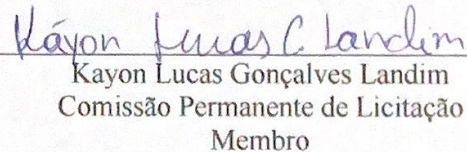 Káyon Lucas C. Landim
Kayon Lucas Gonçalves Landim
Comissão Permanente de Licitação
Membro